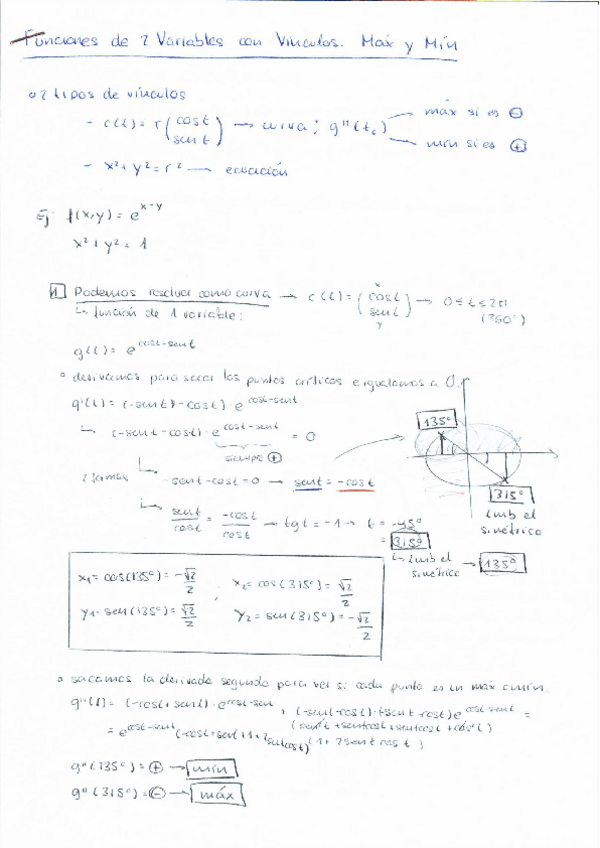 Funciones de 2 Variables con Vínculos. Máx y Mín
2 tipos de vínculos
- c(t) = r (cos t sen t) → curva ; g''(tc) máx si es ⊖ mín si es ⊕
- x² + y² = r² — ecuación
Ej: f(x,y) = e^(x-y)
x² + y² = 1
1 Podemos resolver como curva → c(t) = (cos t sen t) → 0 ≤ t ≤ 2π
x
y
(360°)
↳ función de 1 variable:
g(t) = e^(cost-sent)
° derivamos para sacar los puntos críticos e igualamos a 0.
g'(t) = (-sent - cost) · e^(cost-sent)
↳ (-sent - cost) · e^(cost-sent) = 0
siempre ⊕
135°
315°
2 formas
↳ -sent - cost = 0 → sent = -cost
↳ sent/cost = -cost/cost → tg t = -1 → t = -45°
= 315°
tmb el
simétrico
↳ tmb el
simétrico → 135°
x₁ = cos(135°) = -√2/2 , x₂ = cos(315°) = √2/2
y₁ = sen(135°) = √2/2 y₂ = sen(315°) = -√2/2
° sacamos la derivada segunda para ver si cada punto es un máx o mín.
g''(t) = (-cost + sent) · e^(cost-sent) + (-sent-cost)·(-sent-cost) e^(cost-sent) =
(sen²t + sentcost + sentcost + cos²t)
= e^(cost-sent) (-cost + sent + 1 + 2sentcost) (1 + 2sent cost)
g''(135°) = ⊕ → mín
g''(315°) = ⊖ → máx